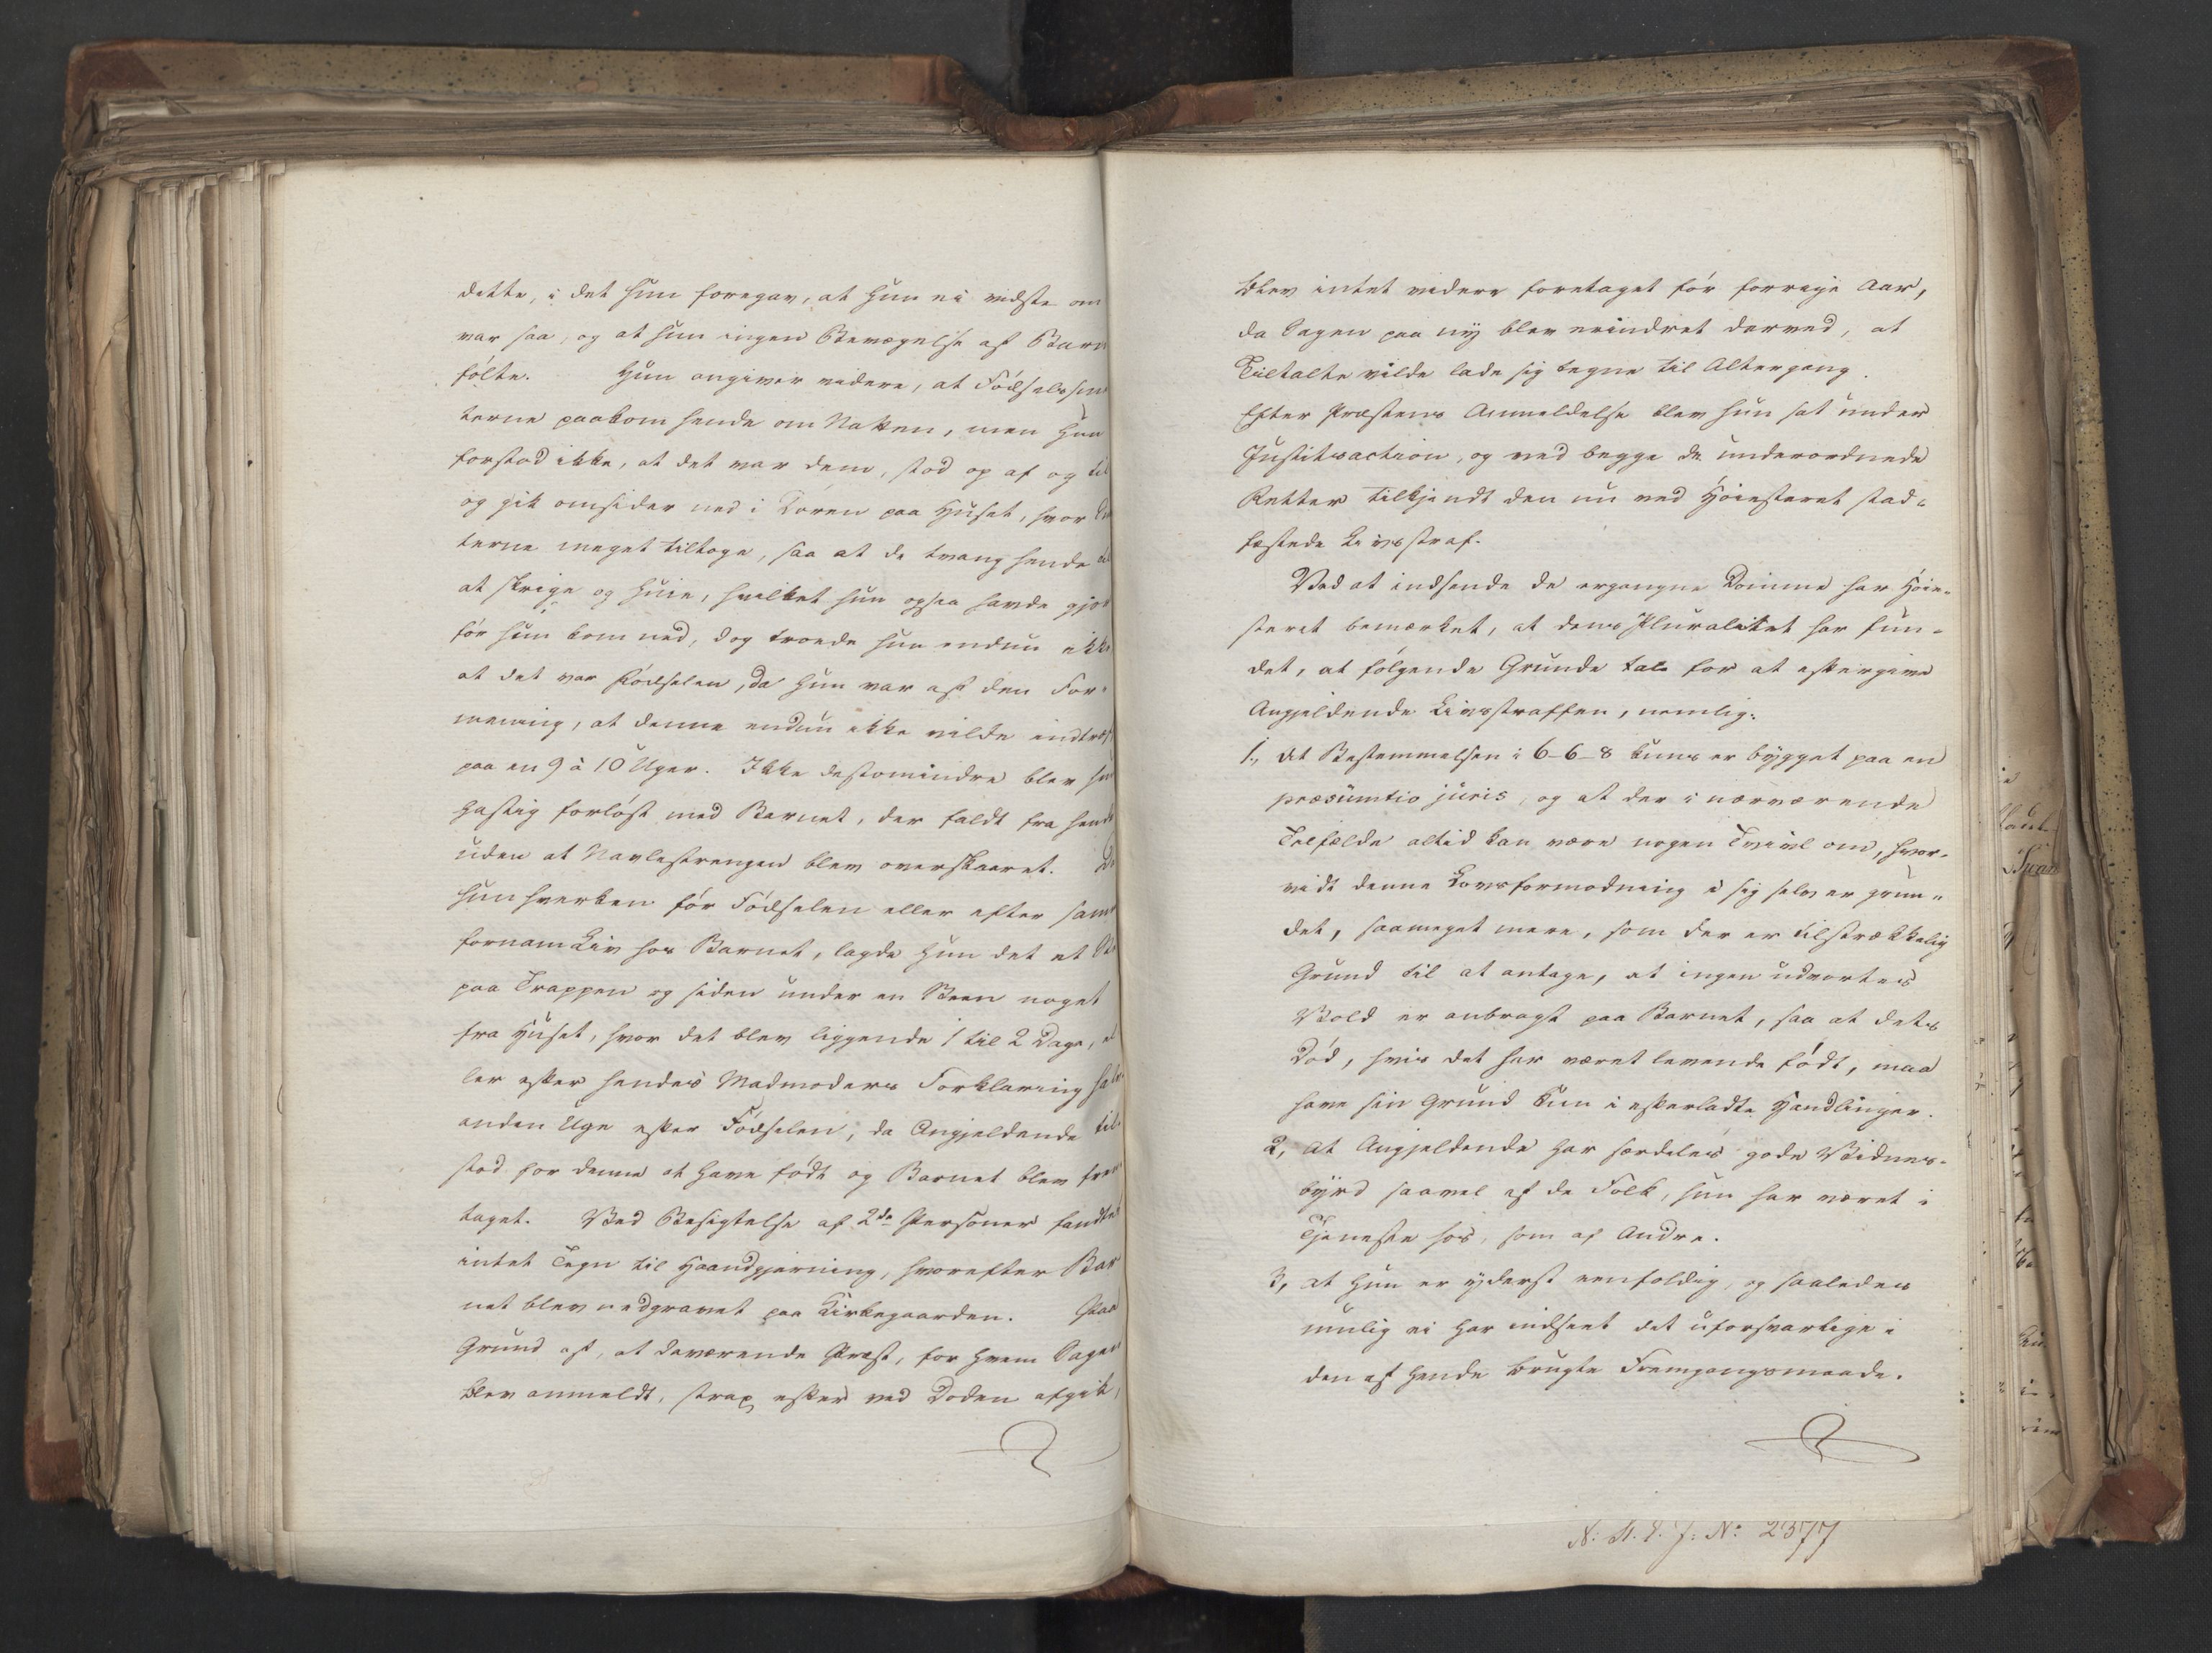 dette, i det hun foregav, at hun ei vidste om
var saa, og at hun ingen Bevægelse af Barn
følte. Hun angiver videre, at Fødselssm
terne paakom hende om Natten, men hun
forstod ikke, at det var dem, stod op af og til
og gik omsider ned i Døren paa Huset, hvor Sm
terne meget tiltoge, saa at de tvang hende til
at skrige og huie, hvilket hun ogsaa havde gjor
før hun kom ned, dog troede hun endnu ikke
at det var Fødselen, da hun var af den For-
mening, at denne endnu ikke vilde indtræf
paa en 9 à 10 Uger. Ikke destomindre blev hun
hastig forløst med Barnet, der faldt fra hende
uden at Navlestrengen blev overskaaret. Da
hun hverken før Fødselen eller efter samme
fornam Liv hos Barnet, lagde hun det et St
paa Trappen og siden under en Steen noget
fra Huset, hvor det blev liggende 1 til 2 Dage, el
ler efter hendes Madmoders Forklaring halv
anden Uge efter Fødselen, da Angjeldende til-
stod for denne at have født og Barnet blev frem
taget. Ved Besigtelse af 2de Personer fandtes
intet Tegn til Haandgjerning, hvorefter Bar
net blev nedgravet paa Kirkegaarden. Paa
Grund af, at daværende Præst, for hvem Sagen
blev anmeldt, strax efter ved Døden afgik,
blev intet videre foretaget før forrige Aar,
da Sagen paa ny blev erindret derved, at
Tiltalte vilde lade sig tegne til Altergang.
Efter Præstens Anmeldelse blev hun sat under
Justitsaction, og ved begge de underordnede
Retter tilkjendt den nu ved Høiesteret stad-
fæstede Livsstraf.
Ved at indsende de ergangne Domme har Høie-
steret bemærket, at dens Pluralitet har fun-
det, at følgende Grunde tale for at eftergive
Angjeldende Livsstraffen, nemlig:
1., At Bestemmelsen i 6-6-8 kuns er bygget paa en
præsumtio juris, og at der i nærværende
Tilfælde altid kan være nogen Tvivl om, hvor-
vidt denne Lovsformodning i sig selv er grun-
det, saameget mere, som der er tilstrækkelig
Grund til at antage, at ingen udvortes
Vold er anbragt paa Barnet, saa at dets
Død, hvis det har været levende født, maa
have sin Grund kun i efterladte Handlinger.
2, at Angjeldende har særdeles gode Vidnes-
byrd saavel af de Folk, hun har været i
Tjeneste hos, som af Andre.
3, at hun er yderst eenfoldig, og saaledes
mulig ei har indseet det uforsvarlige i
den af hende brugte Fremgangsmaade.
N: 2377